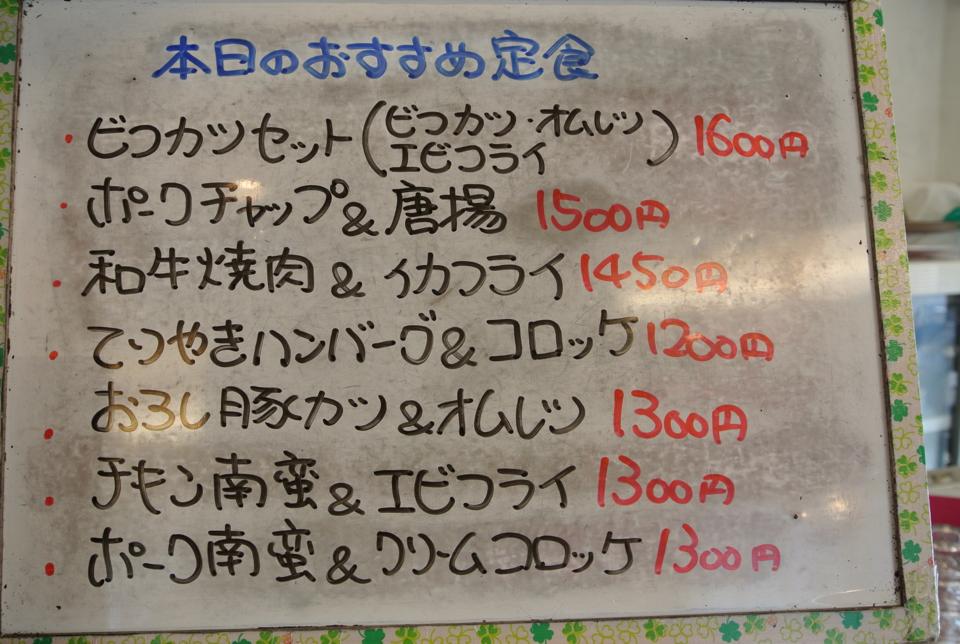 本日のおすすめ定食
・ビフカツセット(ビフカツ・オムレツ エビフライ) 1600円
・ポークチャップ&唐揚 1500円
・和牛焼肉&イカフライ 1450円
・てりやきハンバーグ&コロッケ 1200円
・おろし豚カツ&オムレツ 1300円
・チキン南蛮&エビフライ 1300円
・ポーク南蛮&クリームコロッケ 1300円